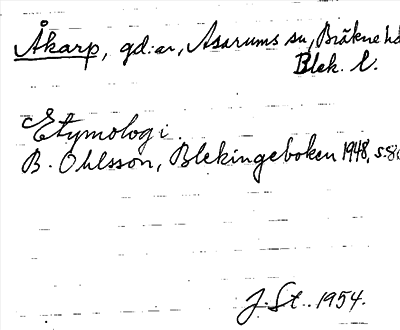 Åkarp, gd:ar, Asarums sn, Bräkne hd
Blek. l.
Etymologi.
B. Ohlsson, Blekingeboken 1948, s.8
J. St.. 1954.